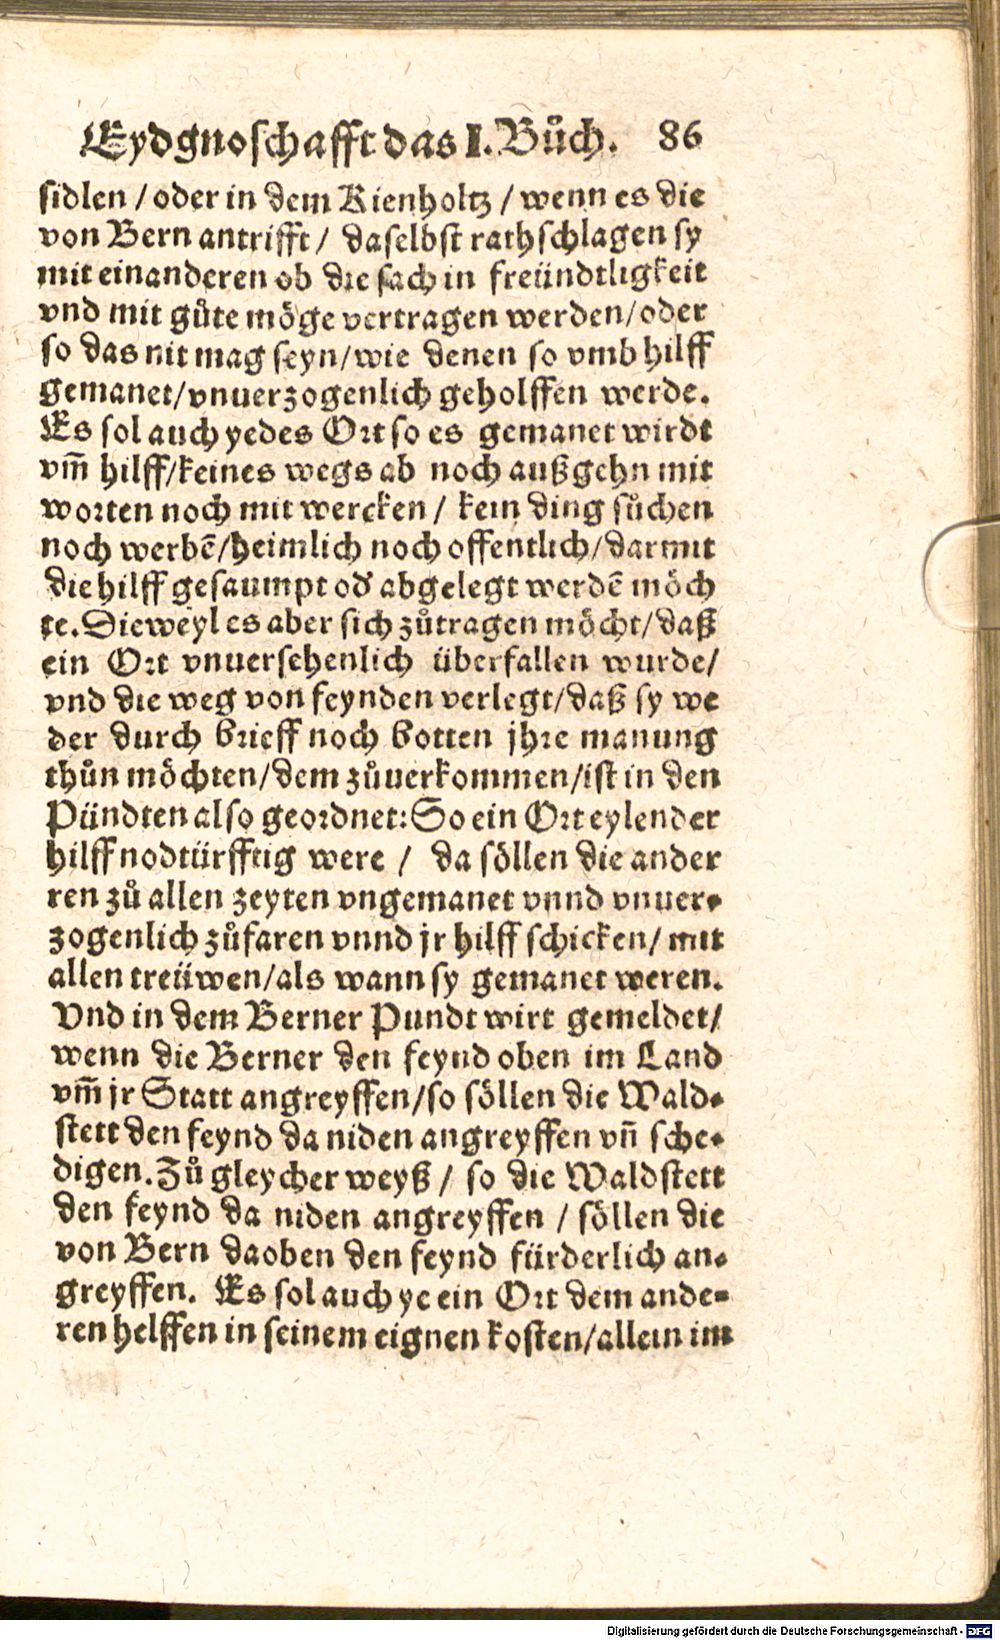 Eydgnoschafft das I. Bůch. 86
sidlen / oder in dem Kienholtz / wenn es die
von Bern antrifft / daselbst rathschlagen sy
mit einanderen ob die sach in freündtligkeit
vnd mit gůte möge vertragen werden/oder
so das nit mag seyn/wie denen so vmb hilff
gemanet/vnuerzogenlich geholffen werde.
Es sol auch yedes Ort so es gemanet wirdt
vm̃ hilff/keines wegs ab noch außgehn mit
worten noch mit wercken / kein ding sůchen
noch werbẽ/heimlich noch offentlich/darmit
die hilff gesaumpt od' abgelegt werdẽ möch
te. Dieweyl es aber sich zůtragen möcht/daß
ein Ort vnuersehenlich überfallen wurde/
vnd die weg von feynden verlegt/daß sy we
der durch brieff noch botten jhre manung
thůn möchten/dem zůuerkommen/ist in den
Pündten also geordnet: So ein Ort eylender
hilff nodtürfftig were / da söllen die ander
ren zů allen zeyten vngemanet vnnd vnuer-
zogenlich zůfaren vnnd jr hilff schicken/ mit
allen treüwen/als wann sy gemanet weren.
Vnd in dem Berner Pundt wirt gemeldet/
wenn die Berner den feynd oben im Land
vm̃ jr Statt angreyffen/so söllen die Wald-
stett den feynd da niden angreyffen vñ sche-
digen. Zů gleycher weyß / so die Waldstett
den feynd da niden angreyffen / söllen die
von Bern daoben den feynd fürderlich an-
greyffen. Es sol auch ye ein Ort dem ande-
ren helffen in seinem eignen kosten/allein im
Digitalisierung gefördert durch die Deutsche Forschungsgemeinschaft - DFG